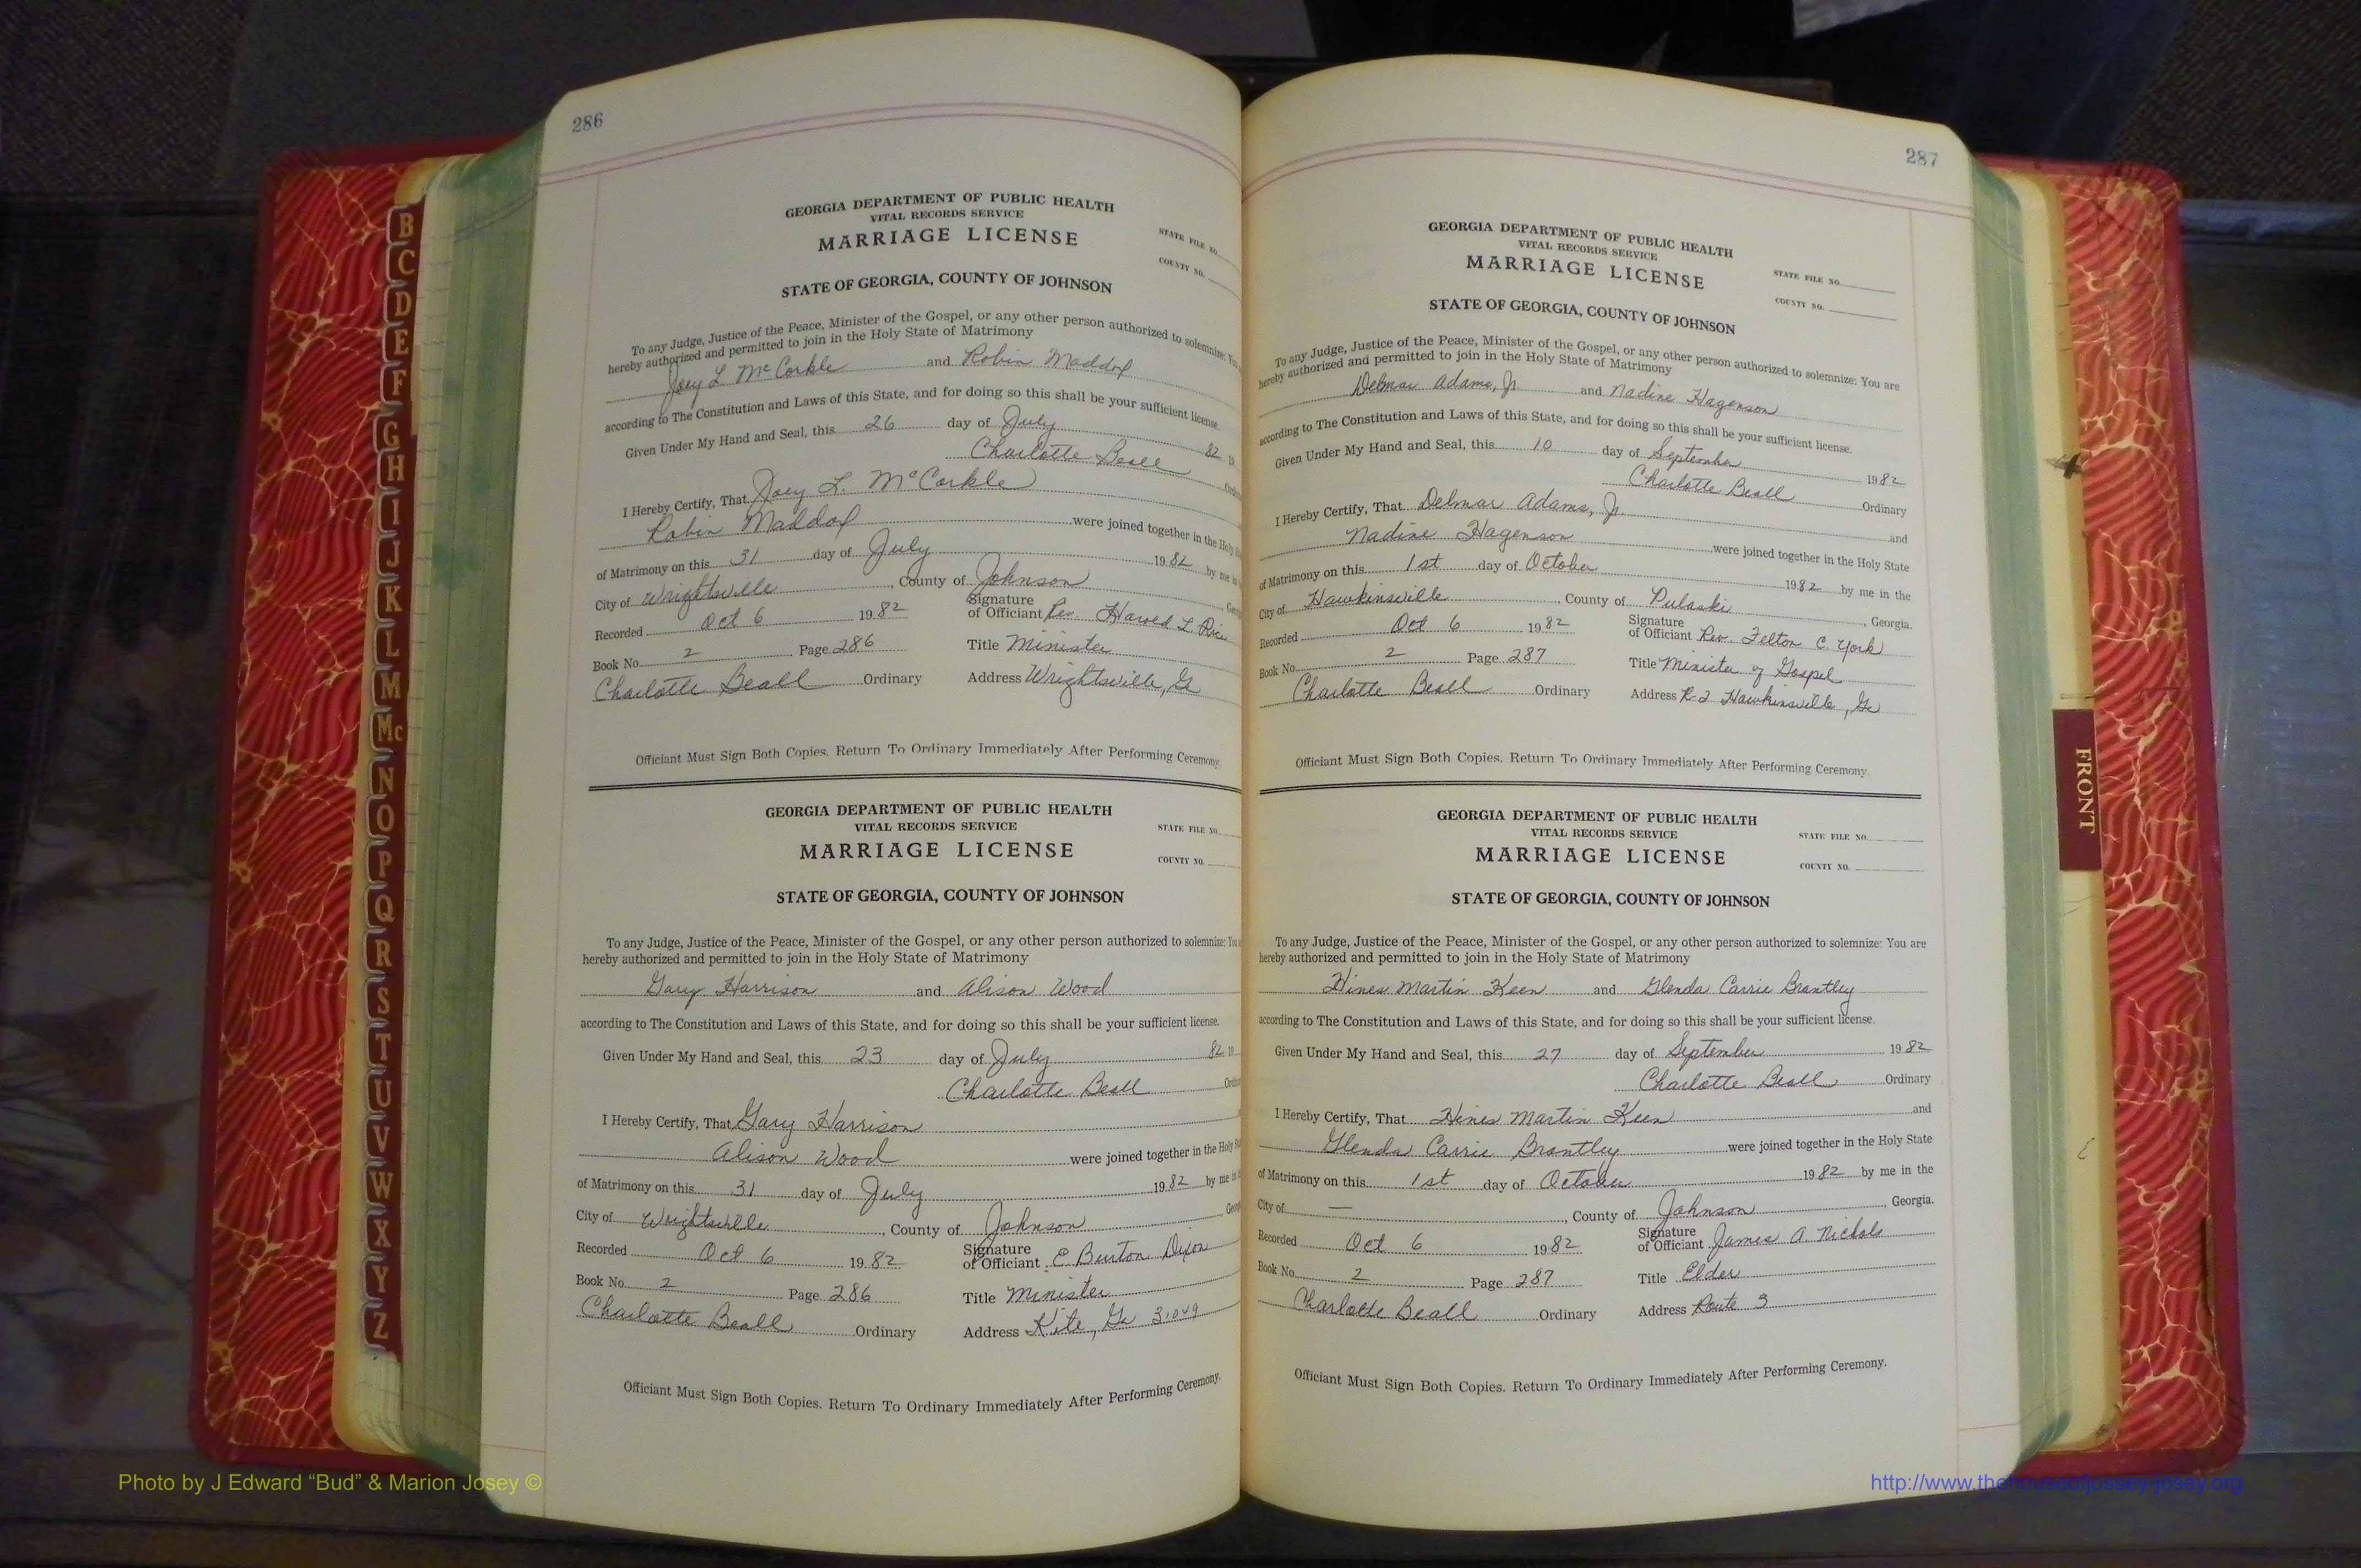 286
GEORGIA DEPARTMENT OF PUBLIC HEALTH
VITAL RECORDS SERVICE
MARRIAGE LICENSE
STATE FILE NO.
COUNTY NO.
STATE OF GEORGIA, COUNTY OF JOHNSON
To any Judge, Justice of the Peace, Minister of the Gospel, or any other person authorized to solemnize: You
hereby authorized and permitted to join in the Holy State of Matrimony
Joey L McCorkle and Robin Maddox
according to The Constitution and Laws of this State, and for doing so this shall be your sufficient license.
Given Under My Hand and Seal, this 26 day of July 82 19
Charlotte Beall
I Hereby Certify, That Joey L. McCorkle
Robin Maddox were joined together in the Holy
of Matrimony on this 31 day of July 1982 by me in
City of Wrightsville, County of Johnson
Recorded Oct 6 1982 Signature of Officiant Rev. Harold L.
Book No. 2 Page 286 Title Minister
Charlotte Beall Ordinary Address Wrightsville, Ga
Officiant Must Sign Both Copies. Return To Ordinary Immediately After Performing Ceremony.
GEORGIA DEPARTMENT OF PUBLIC HEALTH
VITAL RECORDS SERVICE
MARRIAGE LICENSE
STATE FILE NO.
COUNTY NO.
STATE OF GEORGIA, COUNTY OF JOHNSON
To any Judge, Justice of the Peace, Minister of the Gospel, or any other person authorized to solemnize: You
hereby authorized and permitted to join in the Holy State of Matrimony
Gary Harrison and Alison Wood
according to The Constitution and Laws of this State, and for doing so this shall be your sufficient license.
Given Under My Hand and Seal, this 23 day of July 82 19
Charlotte Beall
I Hereby Certify, That Gary Harrison
Alison Wood were joined together in the Holy
of Matrimony on this 31 day of July 1982 by me in
City of Wrightsville, County of Johnson
Recorded Oct 6 1982 Signature of Officiant E Burton Dixon
Book No. 2 Page 286 Title Minister
Charlotte Beall Ordinary Address Kite, Ga 31049
Officiant Must Sign Both Copies. Return To Ordinary Immediately After Performing Ceremony.
287
GEORGIA DEPARTMENT OF PUBLIC HEALTH
VITAL RECORDS SERVICE
MARRIAGE LICENSE
STATE FILE NO.
COUNTY NO.
STATE OF GEORGIA, COUNTY OF JOHNSON
To any Judge, Justice of the Peace, Minister of the Gospel, or any other person authorized to solemnize: You are
hereby authorized and permitted to join in the Holy State of Matrimony
Delmar Adams, Jr. and Nadine Hagenson
according to The Constitution and Laws of this State, and for doing so this shall be your sufficient license.
Given Under My Hand and Seal, this 10 day of September 1982
Charlotte Beall Ordinary
I Hereby Certify, That Delmar Adams, Jr. and
Nadine Hagenson were joined together in the Holy State
of Matrimony on this 1st day of October 1982 by me in the
City of Hawkinsville, County of Pulaski, Georgia.
Recorded Oct 6 1982 Signature of Officiant Rev. Felton C. York
Book No. 2 Page 287 Title Minister of Gospel
Charlotte Beall Ordinary Address R-2 Hawkinsville, Ga
Officiant Must Sign Both Copies. Return To Ordinary Immediately After Performing Ceremony.
GEORGIA DEPARTMENT OF PUBLIC HEALTH
VITAL RECORDS SERVICE
MARRIAGE LICENSE
STATE FILE NO.
COUNTY NO.
STATE OF GEORGIA, COUNTY OF JOHNSON
To any Judge, Justice of the Peace, Minister of the Gospel, or any other person authorized to solemnize: You are
hereby authorized and permitted to join in the Holy State of Matrimony
Hines Martin Keen and Glenda Carrie Brantley
according to The Constitution and Laws of this State, and for doing so this shall be your sufficient license.
Given Under My Hand and Seal, this 27 day of September 1982
Charlotte Beall Ordinary
I Hereby Certify, That Hines Martin Keen and
Glenda Carrie Brantley were joined together in the Holy State
of Matrimony on this 1st day of October 1982 by me in the
City of —, County of Johnson, Georgia.
Recorded Oct 6 1982 Signature of Officiant James A. Nichols
Book No. 2 Page 287 Title Elder
Charlotte Beall Ordinary Address Route 3
Officiant Must Sign Both Copies. Return To Ordinary Immediately After Performing Ceremony.
B
C
D
E
F
G
H
I
J
K
L
M
Mc
N
O
P
Q
R
S
T
U
V
W
X
Y
Z
FRONT
Photo by J Edward “Bud” & Marion Josey ©
http://www.thehouseofjossey-josey.org